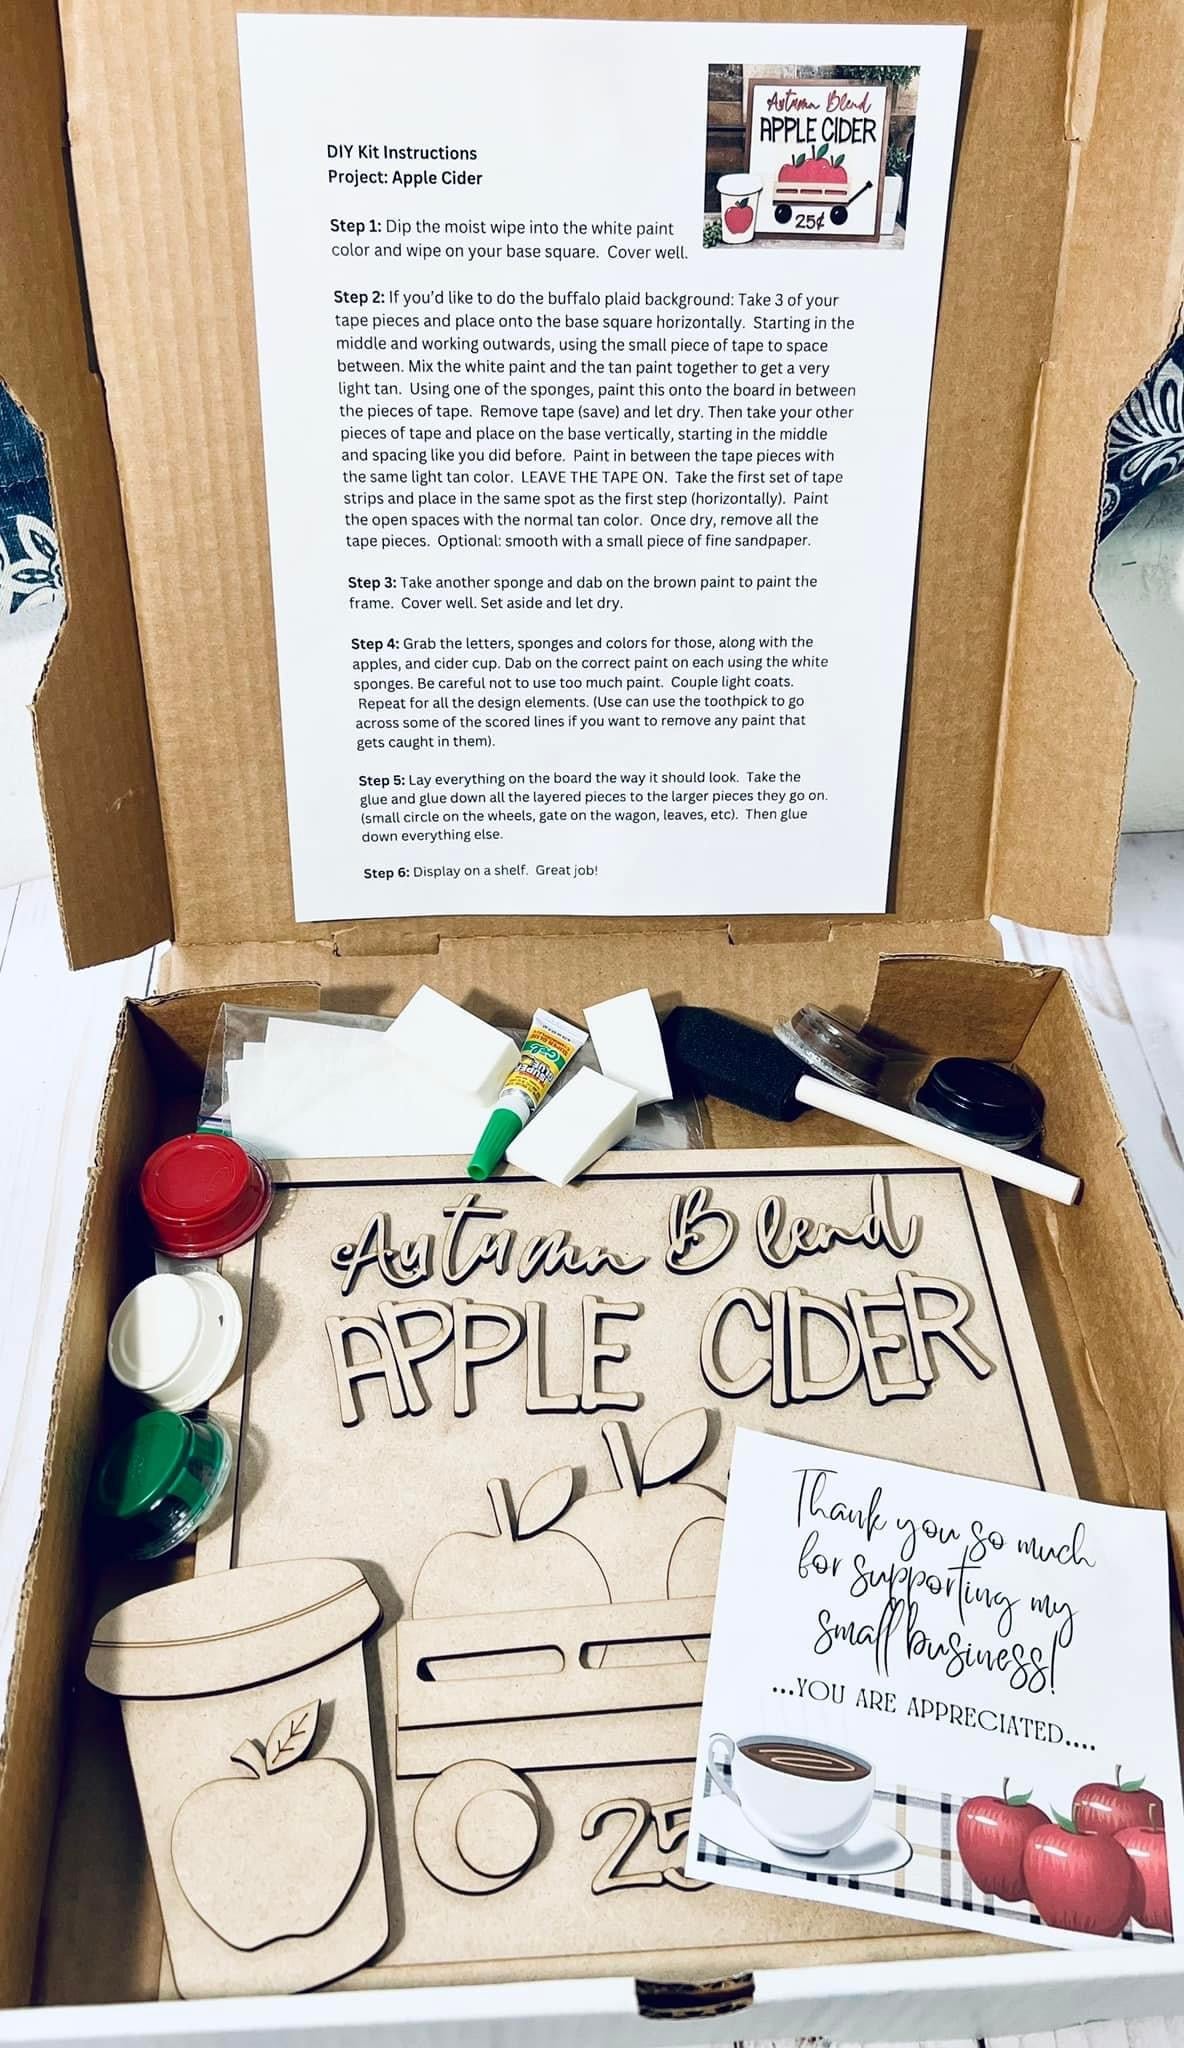 Autumn Blend
APPLE CIDER
25¢
DIY Kit Instructions
Project: Apple Cider
Step 1: Dip the moist wipe into the white paint
color and wipe on your base square. Cover well.
Step 2: If you'd like to do the buffalo plaid background: Take 3 of your
tape pieces and place onto the base square horizontally. Starting in the
middle and working outwards, using the small piece of tape to space
between. Mix the white paint and the tan paint together to get a very
light tan. Using one of the sponges, paint this onto the board in between
the pieces of tape. Remove tape (save) and let dry. Then take your other
pieces of tape and place on the base vertically, starting in the middle
and spacing like you did before. Paint in between the tape pieces with
the same light tan color. LEAVE THE TAPE ON. Take the first set of tape
strips and place in the same spot as the first step (horizontally). Paint
the open spaces with the normal tan color. Once dry, remove all the
tape pieces. Optional: smooth with a small piece of fine sandpaper.
Step 3: Take another sponge and dab on the brown paint to paint the
frame. Cover well. Set aside and let dry.
Step 4: Grab the letters, sponges and colors for those, along with the
apples, and cider cup. Dab on the correct paint on each using the white
sponges. Be careful not to use too much paint. Couple light coats.
Repeat for all the design elements. (Use can use the toothpick to go
across some of the scored lines if you want to remove any paint that
gets caught in them).
Step 5: Lay everything on the board the way it should look. Take the
glue and glue down all the layered pieces to the larger pieces they go on.
(small circle on the wheels, gate on the wagon, leaves, etc). Then glue
down everything else.
Step 6: Display on a shelf. Great job!
SUPER
GLUE
Autumn Blend
APPLE CIDER
25
Thank you so much
for supporting my
small business!
...YOU ARE APPRECIATED....